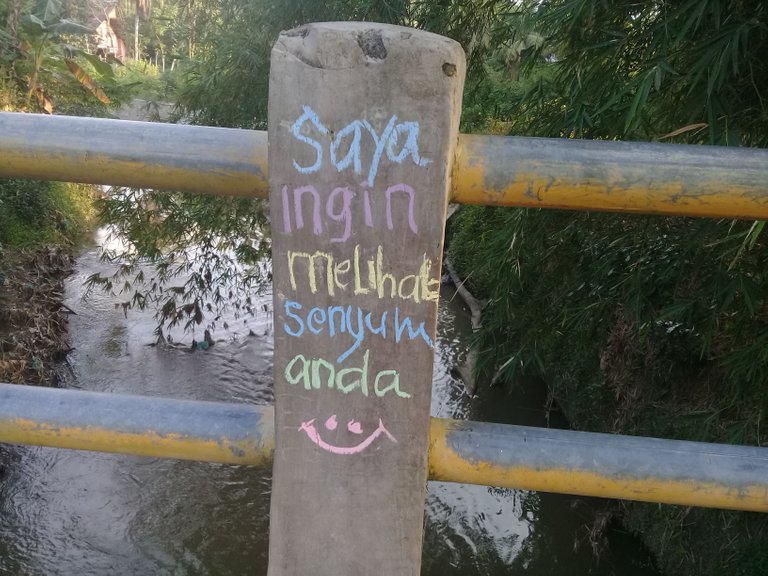 Saya
ingin
meLihat
senyum
anda